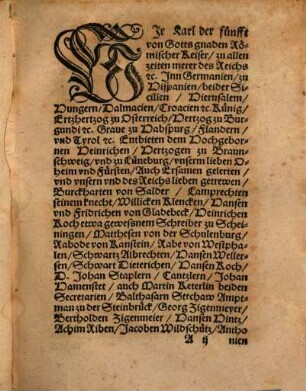 WIr Karl der fünfft
von Gotts gnaden Rö-
mischer Keiser/ zu allen
zeiten merer des Reichs
ꝛc. Jnn Germanien/ zu
Hispanien/ beider Si-
cilien / Hierusalem/
Hungern/ Dalmacien/ Croacien ꝛc. König/
Ertzhertzog zu Osterreich/ Hertzog zu Bur-
gundi ꝛc. Graue zu Habspurg/ Flandern /
vnd Tyrol ꝛc. Entbieten dem Hochgebor-
nen Heinrichen/ Hertzogen zu Braun-
schweig/ vnd zu Lüneburg/ vnserm lieben O-
heim vnd Fürsten/ Auch Ersamen gelerten /
vnd vnsern vnd des Reichs lieben getrewen /
Burckharten von Salder / Camprechten
seinem knecht/ Willicken Klencken/ Hansen
vnd Fridrichen von Gladebeck/ Heinrichen
Koch etwa gewesenem Schreiber zu Schei-
ningen/ Matthesen von der Schulenburg/
Rabode von Kanstein/ Rabe von Westpha-
len/ Schwartz Albrechten/ Hansen Weller-
sen/ Schwart Dieterichen/ Hansen Koch/
D. Johan Staplern / Cantzlern/ Johan
Hamenstet / auch Martin Keterlin beiden
Secretarien / Balthasarn Stechaw Ampt-
man zu der Steinbrück/ Georg Zigenmeyer/
Bertholden Zigenmeier / Hansen Hintz/
Achim Riben/ Jacoben Wildschütz/ Antho
A ij nien